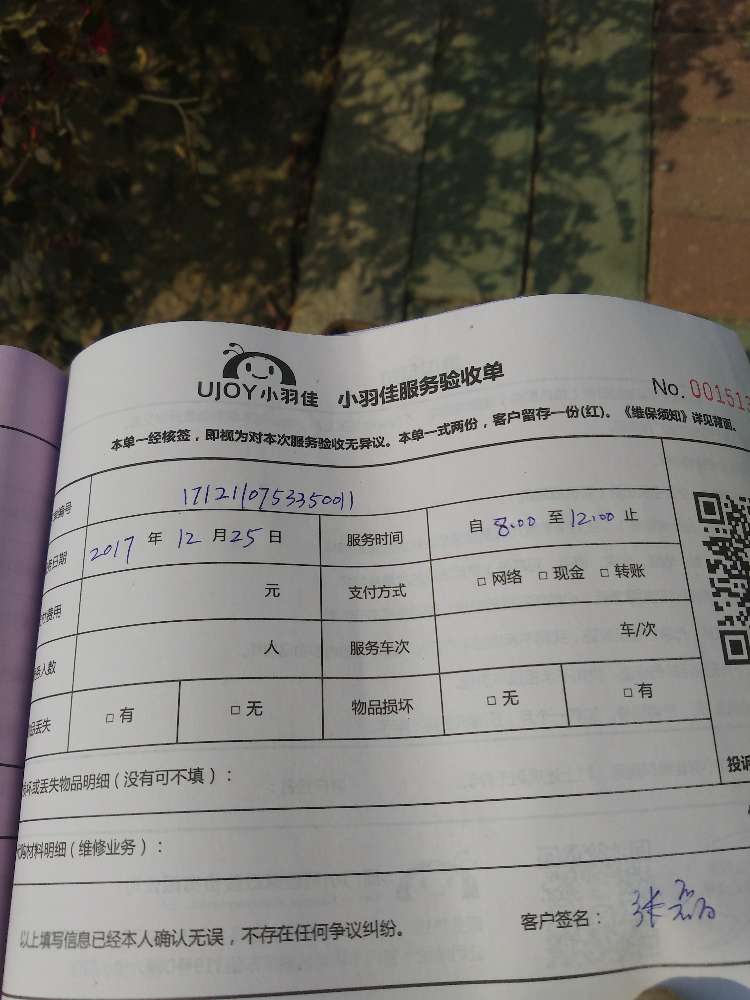 UJOY小羽佳 小羽佳服务验收单
No. 001513
本单一经核签，即视为对本次服务验收无异议。本单一式两份，客户留存一份(红)。《维保须知》详见背面。
编号 1712110753350011
日期 2017 年 12 月 25 日 服务时间 自 8:00 至 12:00 止
费用 元 支付方式 □ 网络 □ 现金 □ 转账
人数 人 服务车次 车/次
丢失 □ 有 □ 无 物品损坏 □ 无 □ 有
投诉
坏或丢失物品明细（没有可不填）：
购材料明细（维修业务）：
以上填写信息已经本人确认无误，不存在任何争议纠纷。 客户签名： 张